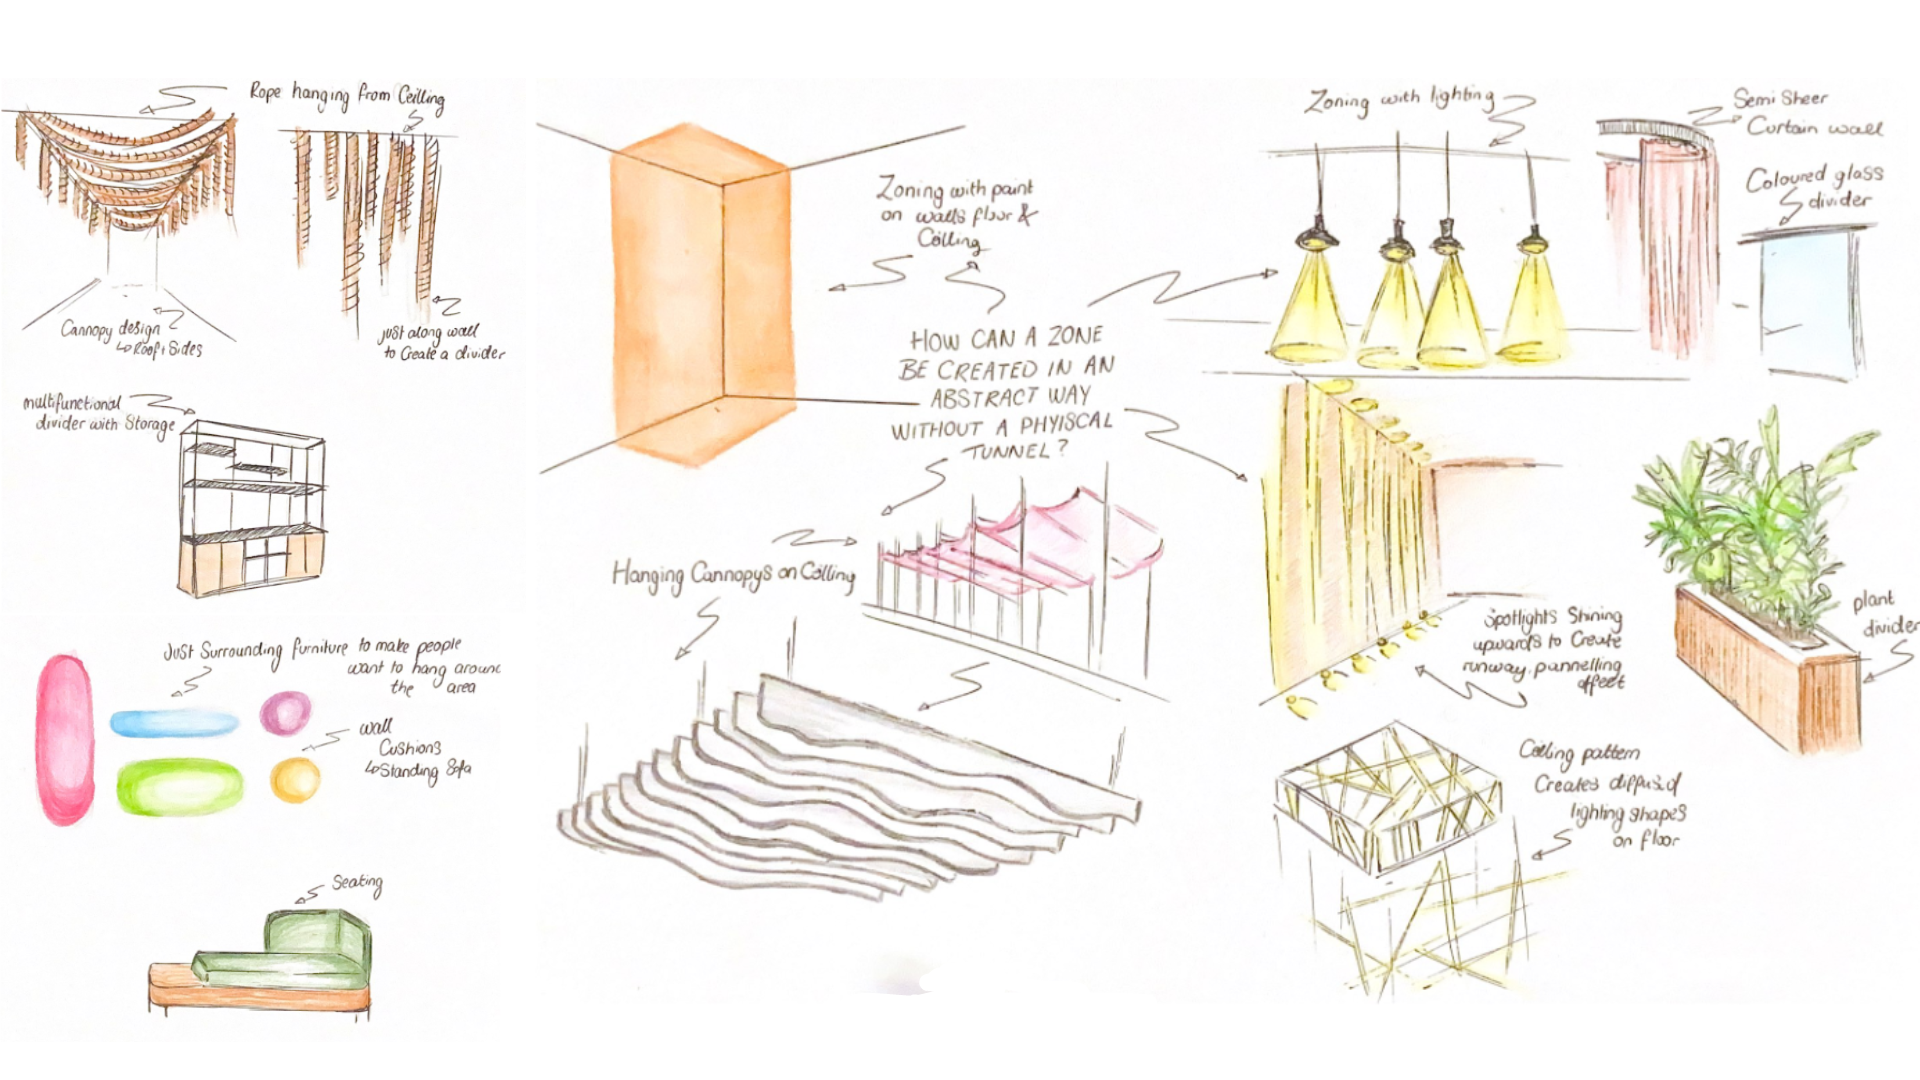 Rope hanging from Ceilling
Cannopy design
↳ Roof + Sides
just along wall
to Create a divider
multifunctional
divider with Storage
Just Surrounding furniture to make people
want to hang around
the area
wall
Cushions
↳ Standing Sofa
Seating
Zoning with paint
on walls floor &
Ceilling
HOW CAN A ZONE
BE CREATED IN AN
ABSTRACT WAY
WITHOUT A PHYISCAL
TUNNEL?
Hanging Cannopys on Ceilling
Zoning with lighting
Semi Sheer
Curtain wall
Coloured glass
divider
Spotlights Shining
upwards to Create
runway, pannelling
effect
plant
divider
Ceiling pattern
Creates diffused
lighting shapes
on floor